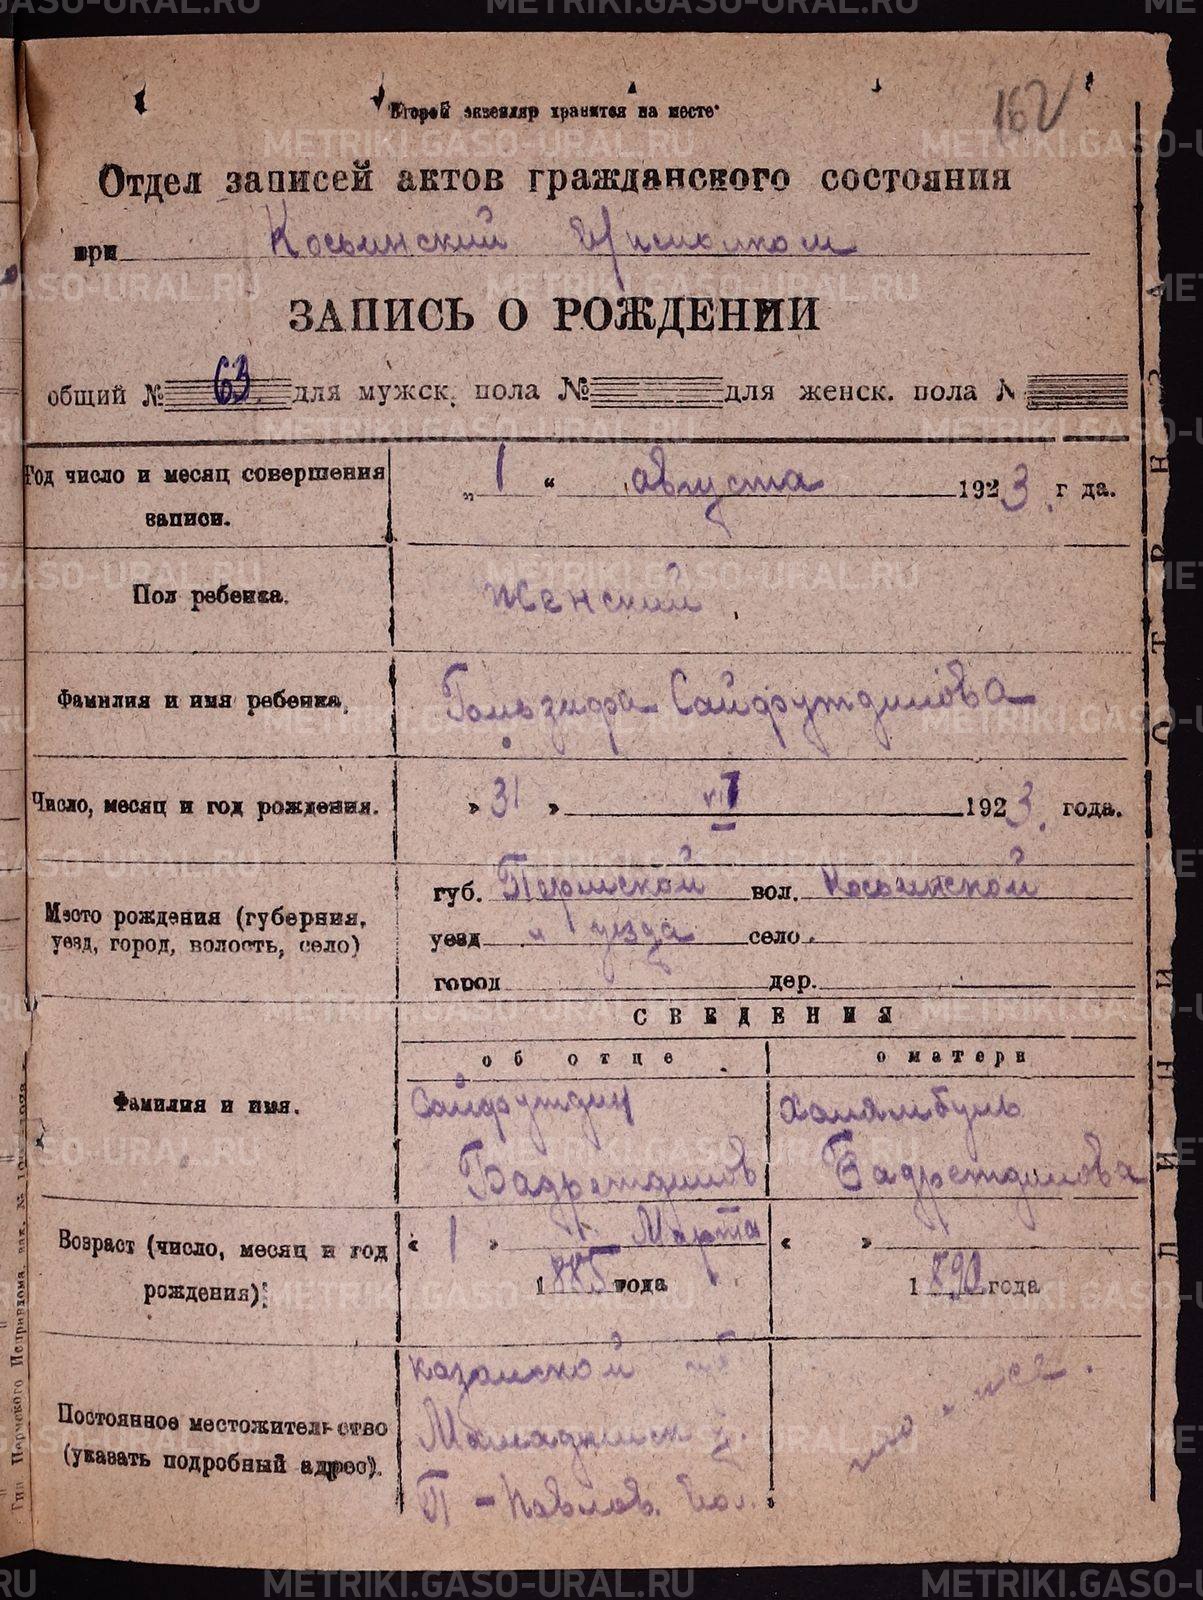 162
Второй экземпляр хранится на месте
Отдел записей актов гражданского состояния
при Косьинский
ЗАПИСЬ О РОЖДЕНИИ
общий № 63. для мужск. пола № для женск. пола №
Год число и месяц совершения записи. „ 1 “ августа 1923. г да.
Пол ребенка. Женский
Фамилия и имя ребенка. Сайфутдинова
Число, месяц и год рождения. » 31 » VII 1923. года.
Место рождения (губерния, уезд, город, волость, село)
губ. Пермской вол. Косьинской
уезд " уезда село.
город дер.
СВЕДЕНИЯ
об отце о матери
Фамилия и имя.
Сайфутдин
Бадретдинов Бадретдинова
Возраст (число, месяц и год рождения)
« 1 » Марта « »
1885 года 1890 года
Постоянное местожительство (указать подробный адрес).
Казанской
Мамадышск у.
то же
ЛИНИЯ ОТРЕЗА
METRIKI.GASO-URAL.RU